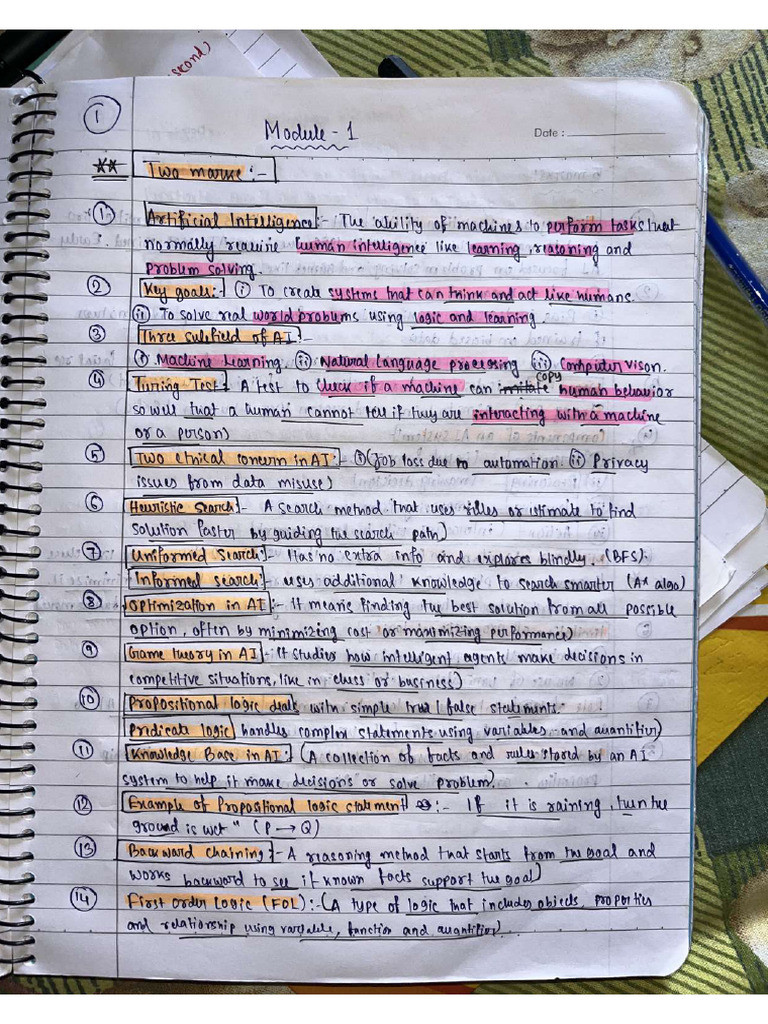 second)
1
Module - 1
Date :
** Two marks :-
① Artificial Intelligence :- The ability of machines to perform tasks that
normally require human intelligence like learning, reasoning and
problem solving.
② Key goals :- (i) To create systems that can think and act like humans.
(ii) To solve real world problems using logic and learning.
③ Three subfield of AI :-
(i) Machine Learning. (ii) Natural Language processing (iii) Computer vison.
copy
④ Turing Test :- A test to check if a machine can imitate human behavior
so well that a human cannot tell if they are interacting with a machine
or a person)
⑤ Two ethical concern in AI :- (i) (Job loss due to automation. (ii) Privacy
issues from data misuse)
⑥ Heuristic Search :- A search method that uses rules or estimate to find
solution faster by guiding the search path)
⑦ Uniformed Search :- Has no extra info and explores blindly. (BFS).
Informed search :- uses additional knowledge to search smarter (A* algo)
⑧ Optimization in AI :- it means finding the best solution from all possible
option, often by minimizing cost or maximizing performance)
⑨ Game theory in AI :- (it studies how intelligent agents make decisions in
competitive situations, like in chess or business)
⑩ Propositional logic deals with simple true / false statements.
Predicate logic handles complex statements using variables and quantifier)
⑪ Knowledge Base in AI :- (A collection of facts and rules stored by an AI
system to help it make decisions or solve problem)
⑫ Example of Propositional logic statement :- If it is raining, then the
ground is wet" (P → Q)
⑬ Backward chaining :- A reasoning method that starts from the goal and
works backward to see if known facts support the goal)
⑭ First order logic (FOL) :- (A type of logic that includes objects, properties
and relationship using variable, function and quantifier)